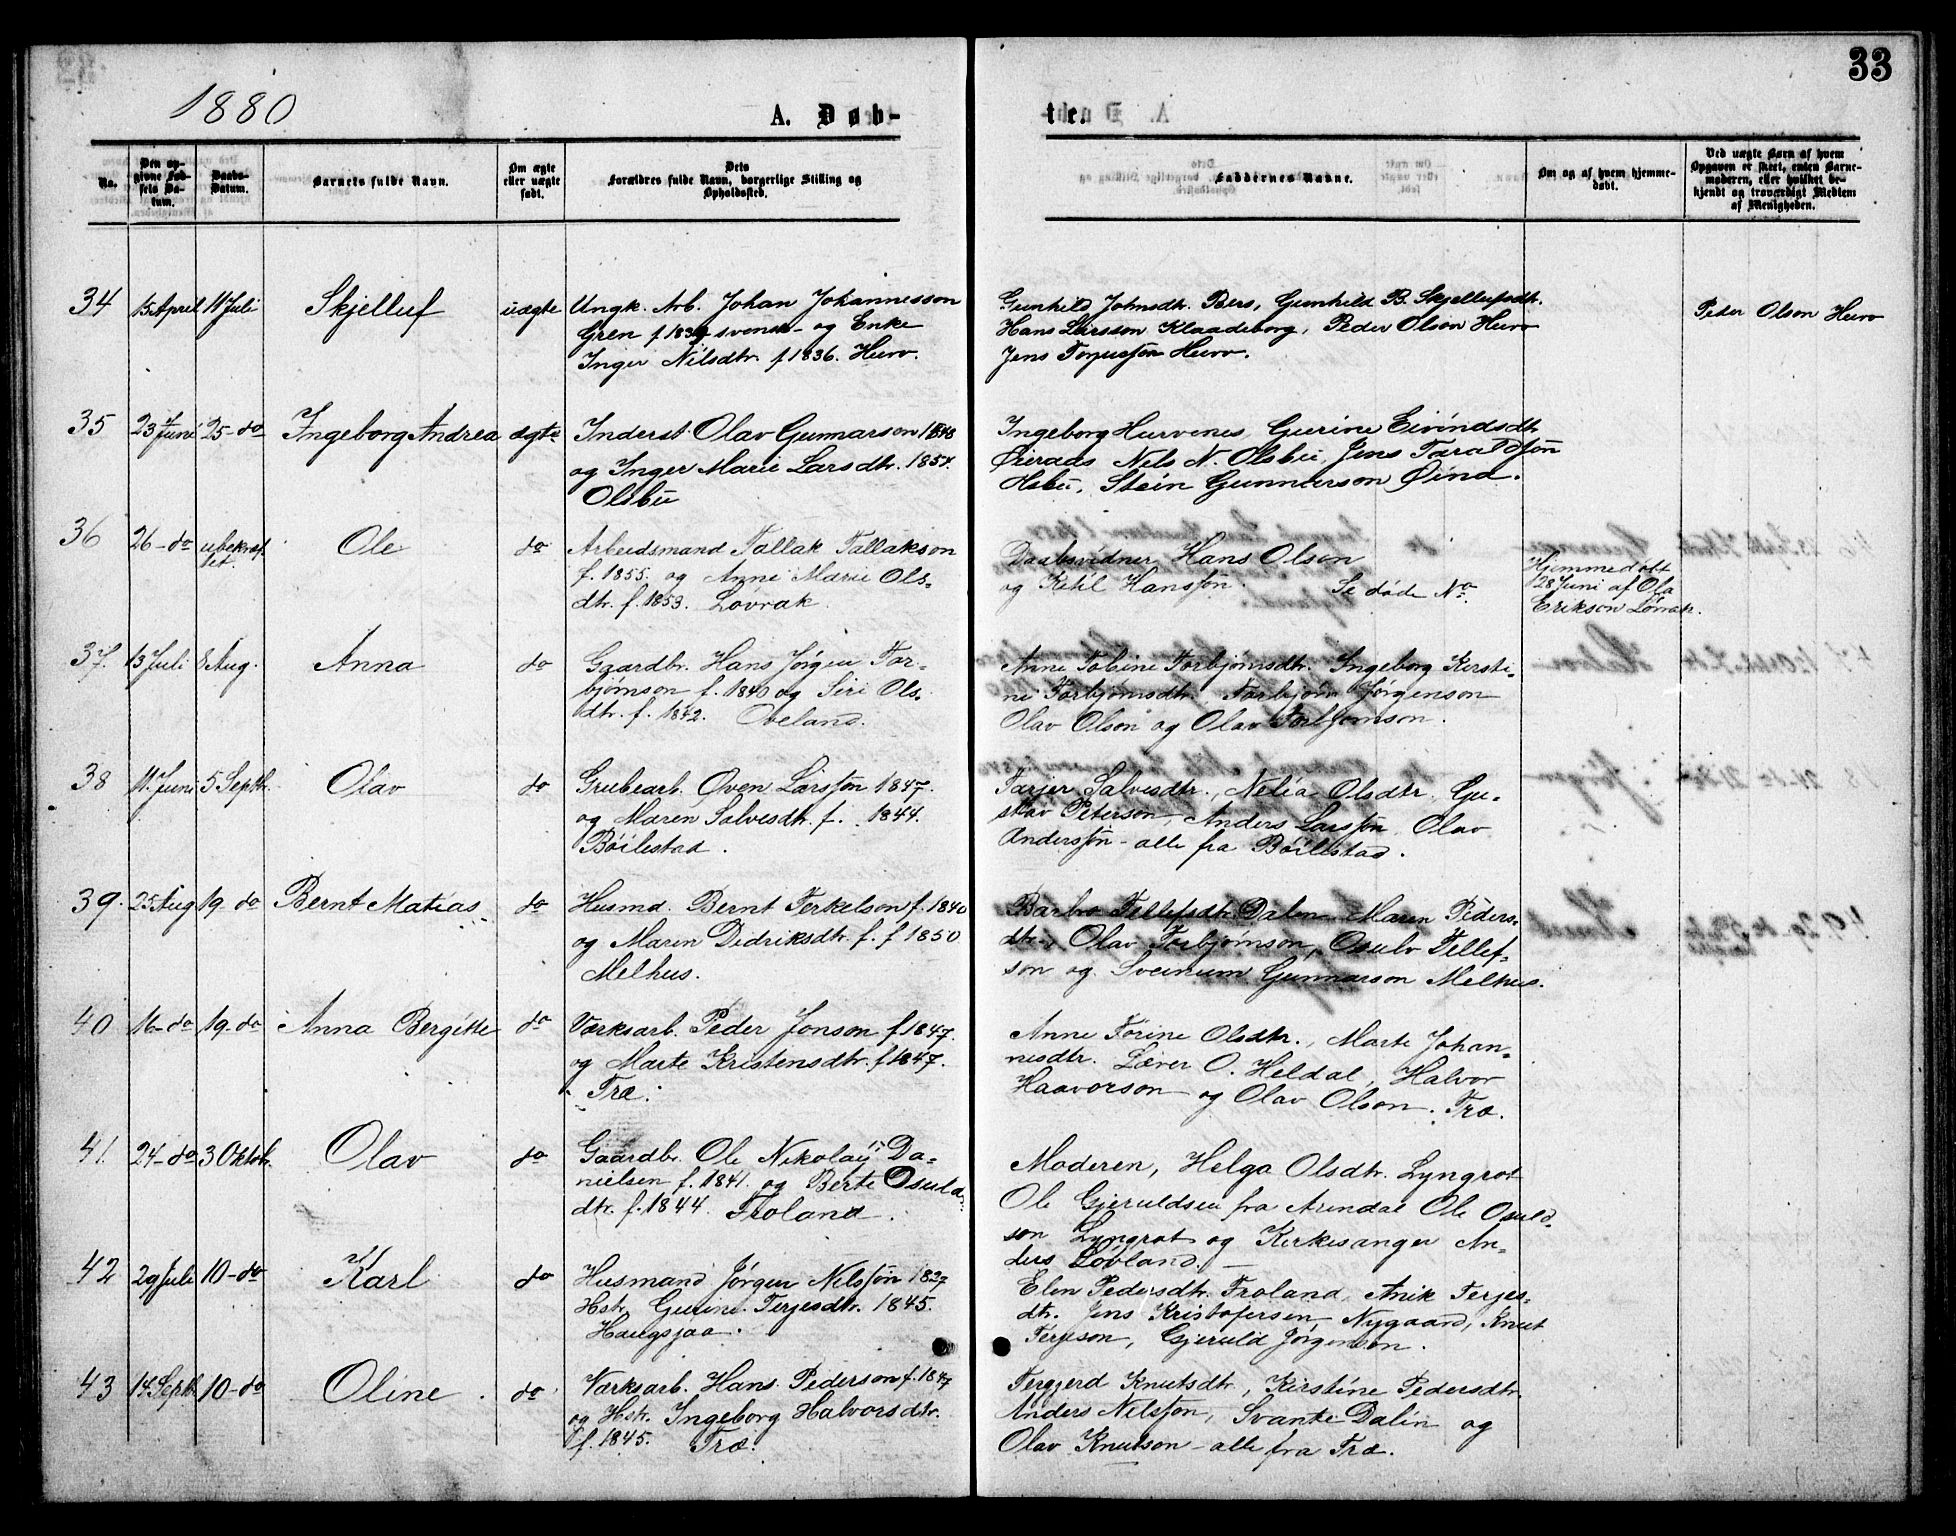 33
1880
A. Døb-
ter.
No.
Den op-
givne Fød-
sels Da-
tum.
Daabs-
Datum.
Barnets fulde Navn.
Om ægte
eller uægte
født.
Dets
Forældres fulde Navn, borgerlige Stilling og
Opholdssted.
Faddernes Navne.
Om og af hvem hjemme-
døbt.
Ved uægte Børn af hvem
Opgaven er skeet, enten Barne-
moderen, eller hvilket be-
kjendt og troværdigt Medlem
af Menigheden.
34 15 April 11 Juli Skjelluf uægte Ungk. Arb. Johan Johannesson
Gren f 1839 svensk - og Enke
Inger Nilsdtr. f 1836. Hurv.
Gunhild Johnsdtr. Bers, Gunhild B. Skjellufsdtr.
Hans Larsson Klaadeborg, Peder Olson Hurv
Jens Torjusson Hurv.
Peder Olson Hurv
35 23 Juni 25 - do Ingeborg Andrea ægte Inderst. Olav Gunnarson 1848
og Inger Marie Larsdtr. 1857.
Olsbu
Ingeborg Hurvenes, Gurine Eivindsdtr
Øierads Nels N. Olsbu Jens Taraldson
Hsbu, Stein Gunnarson Øind.
36 26 - do ubekræf-
tet. Ole do Arbeidsmand Tallak Tallakson
f. 1855. og Anne Marie Ols-
dtr. f. 1853. Løvrak.
Daabsvidner, Hans Olson
og Ketil Hansson. Se døde No.
Hjemmedøbt
28 Juni af Ola
Erikson Løvrak.
37. 13 Juli 8 Aug. Anna do Gaardbr. Hans Jørgen Tor-
bjørnson f. 1840 og Siri Ols-
dtr. f. 1842. Oveland.
Anne Tobine Torbjørnsdtr. Ingeborg Kersti-
ne Torbjørnsdtr. Torbjørn Jørgenson
Olav Olson og Olav Torbjørnson.
38 11. Juni 5 Septb. Olav do Grubearb. Øven Larsson 1847.
og Maren Salvesdtr. f. 1844.
Bøilestad.
Tarjer Salvesdtr., Nelia Olsdtr, Gu-
stav Peterson, Anders Larsson, Olav
Andersson - alle fra Bøilestad.
39. 25 Aug 19 - do Bernt Matias do Husmd. Bernt Terkelson f. 1840
og Maren Didriksdtr. f. f 1850
Melhus.
Barbro Tellefsdtr. Dalen, Maren Peders-
dtr., Olav Torbjørnson, Osulv Tellef-
son og Sveinum Gunnarson Melhus.
40 16 - do 19 - do Anna Bergitte do Værksarb. Peder Jonson f. 1847.
og Marte Kristensdtr. f 1847.
Træ.
Anne Torine Olsdtr., Marte Johan-
nesdtr. Laver O. Heldal, Halvor
Haavorson og Olav Olson. Træ.
41. 24 - do 3 Oktob. Olav do Gaardbr. Ole Nikolay Da-
nielsen f. 1841. og Berte Osulds-
dtr. f. 1844. Froland.
Moderen, Helga Olsdtr. Lyngrot
Ole Gjeruldsen fra Arendal Ole Osuld-
son Lyngrot og Kirkesanger An-
ders Løvland. -
42 29 Juli 10 - do Karl do Husmand Jørgen Nelsson 1827
Hstr. Gurine Terjesdtr. 1845.
Haugsjaa.
Elen Pedersdtr. Froland, Anik Terjes-
dtr. Jens Kristofersen, Nygaard, Knut
Terjeson, Gjeruld Jørgenson.
43 14 Septb. 10 - do Oline do Værksarb. Hans Pederson f. 1847
og Hstr. Ingeborg Halvorsdtr.
f. 1845. Træ.
Tergjerd Knutsdtr., Kirstine Pedersdtr.
Anders Nelsson, Svante Dalin og
Olav Knutson - alle fra Træ.